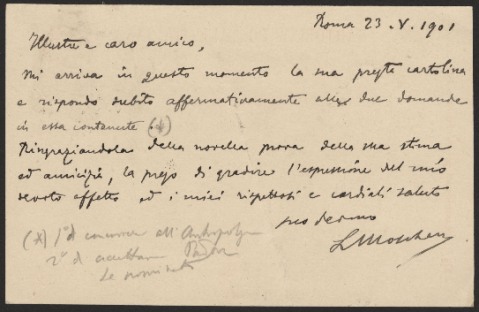 Roma 23. V. 1901
Illustre e caro amico,
Mi arriva in questo momento la sua pregta cartolina
e rispondo subito affermativamente alle due domande
in essa contenute (*)
Ringraziandola della novella prova della sua stima
ed amicizia, la prego di gradire l'espressione del mio
devoto affetto ed i miei rispettosi e cordiali saluti
suo devmo
LMoschen
(*) 1º di concorrere all'
2º di accettare
la nomina